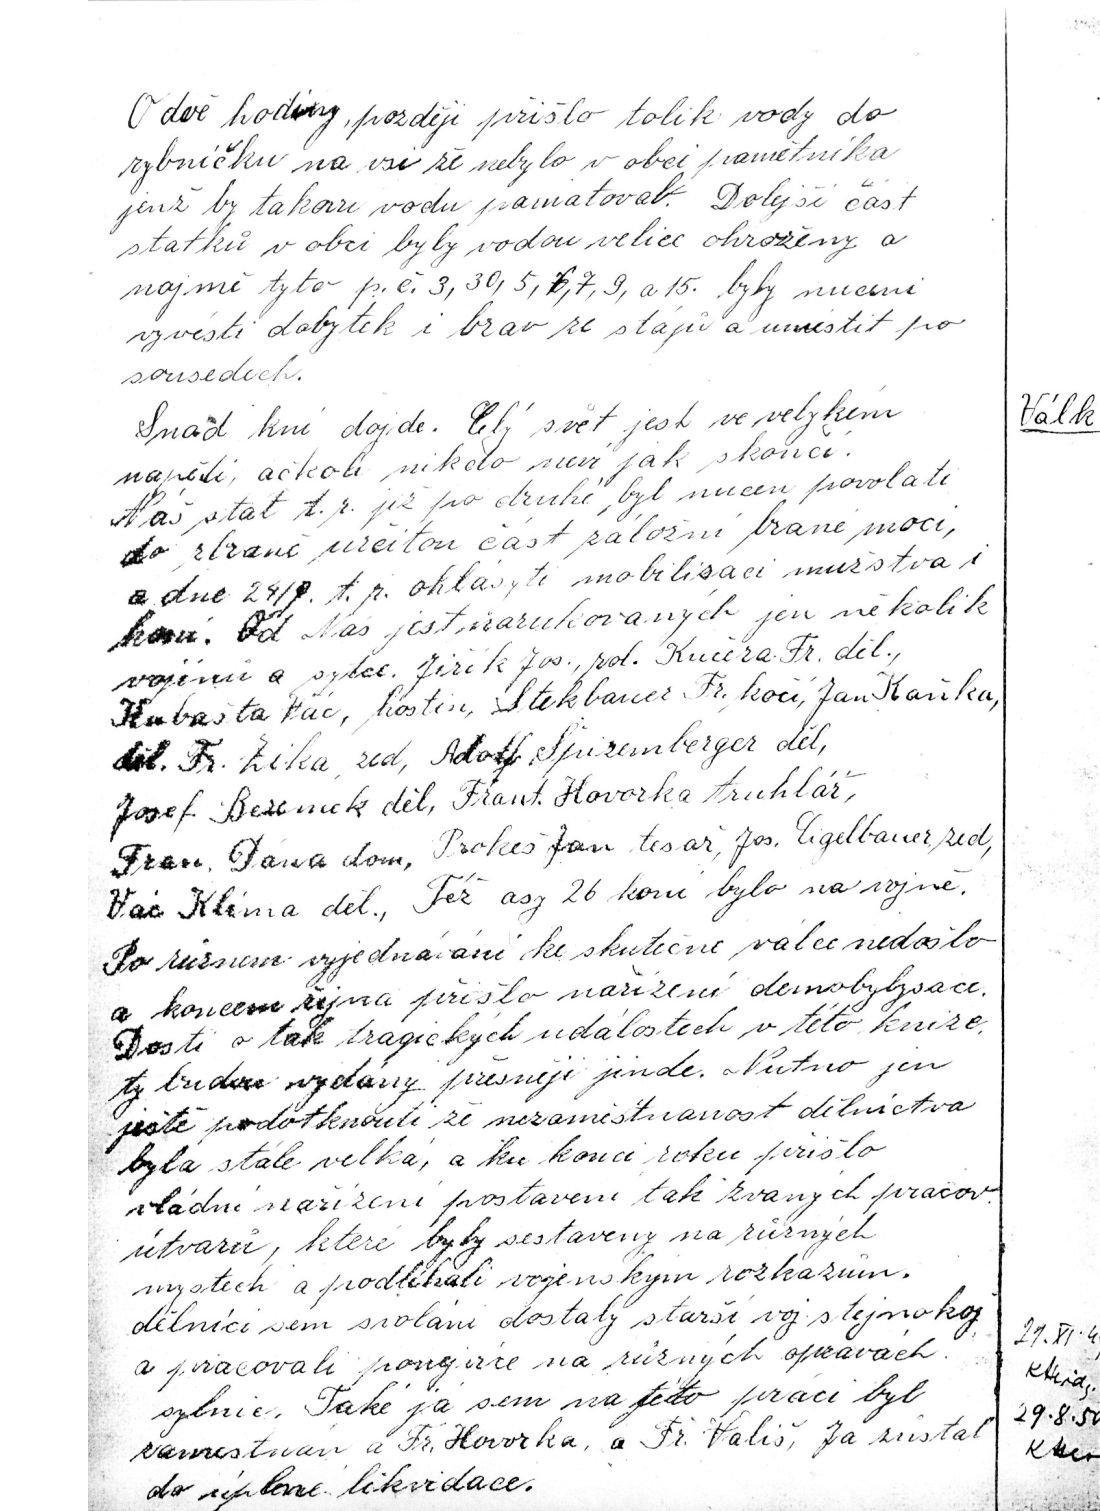 O dvě hodiny, později přišlo tolik vody do
rybníčku na vsi že nebylo v obci pamětníka
jenž by takovu vodu pamatoval. Dolejší část
statků v obci byly vodou velice ohroženy a
najmě tyto p. č. 3, 30, 5, 6, 7, 9, a 15. byly nuceni
vyvésti dobytek i brav ze stájů a umístit po
sousedech.
Snad kní dojde. Celý svět jest ve velykém
Válk
napětí, ačkoli nikdo neví jak skončí.
Náš stat t. r. již po druhé, byl nucen povolati
do zbraně určitou část záložní brané moci,
a dne 24/9. t. r. ohlásyti mobilisaci mužstva i
koní. Od Nás jest narukovaných jen několik
vojínů a sytce. Jiřík Jos., rol. Kučera Fr. děl.,
Kubašta Vác, hostin, Stekbauer Fr. kočí, Jan Kaňka,
děl. Fr. Žika zed, Adolf Špizemberger děl,
Josef Beremek děl, Frant. Hovorka truhlář,
Fran. Dáňa dom, Prokeš Jan tesař, Jos. Eigelbauer, zed,
Vác Klíma děl., Též asy 26 koní bylo na vojně.
Po různem vyjednávání ke skutečné válce nedošlo
a koncem října přišlo nařízení demobylysace.
Dosti o tak tragických událostech v této knize,
ty budou vydány přesněji jinde. Nutno jen
ještě podotknouti že nezaměstnanost dělnictva
byla stále velká, a ku konci roku přišlo
vládní nařízení postavení tak zvaných pracov.
útvarů, které byly sestaveny na různých
mystech a podléhali vojenským rozkazům.
dělníci sem svoláni dostaly starší voj stejnokoj
29. XI. 4
a pracovali na různých opravách
sylnic. Také já sem na této práci byl
29. 8. 50
zamestnan a Fr. Hovorka, a Fr. Vališ, Ja zůstal
do úplné likvidace.